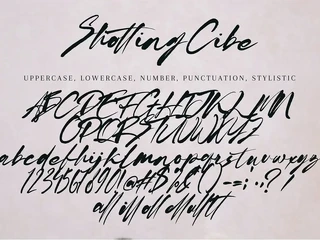 Shotting Cibe
UPPERCASE, LOWERCASE, NUMBER, PUNCTUATION, STYLISTIC
ABCDEFGHIJKLMN
OPQRSTUVWXYZ
abcdefghijklmnopqrstuvwxyz
1234567890!@#$%&*() -=:;.,? /